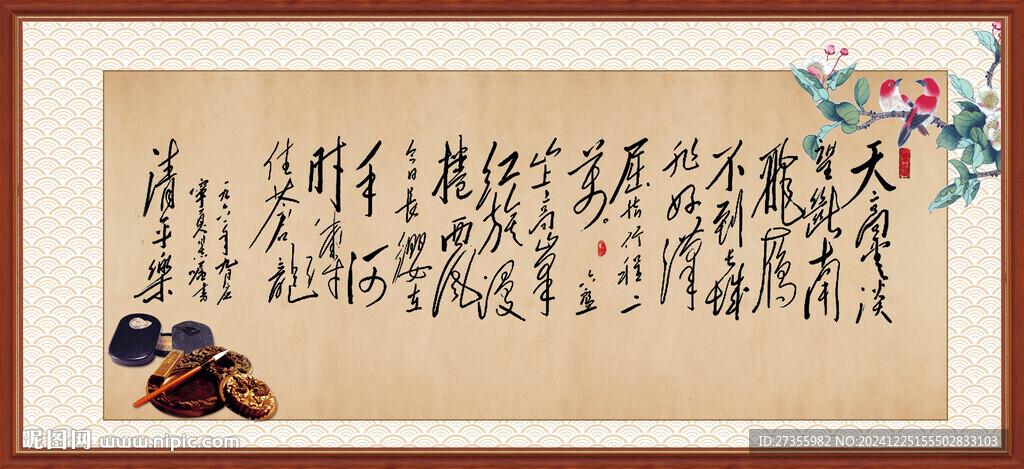 天高雲淡
望斷南
飛雁
不到長城
非好漢
屈指行程二
萬。六盤
山上高峯
紅旗漫
捲西風
今日長纓在
手何
時縛
住蒼龍
一九六一年九月
寧夏囑書
清平樂
昵图网 www.nipic.com
ID:27355982 NO:20241225155502833103